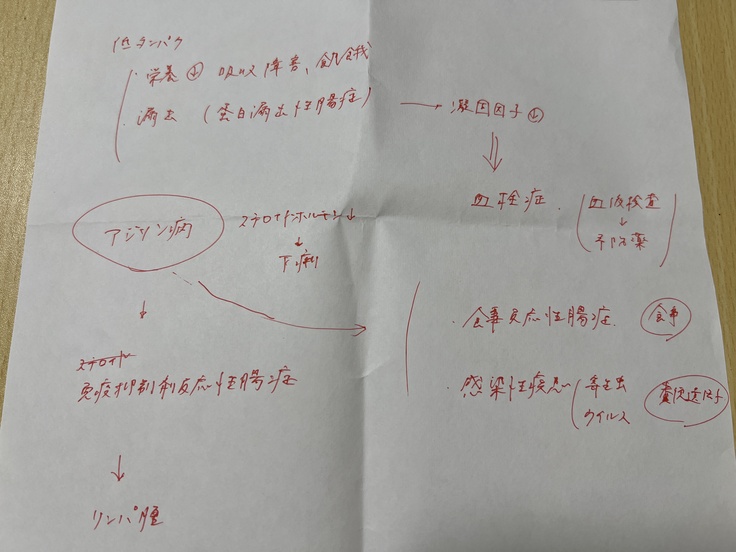 低タンパク
・栄養↓ 吸収障害、飢餓
・漏出 (蛋白漏出性腸症) → 凝固因子↓
血栓症. (血液検査
↓
予防薬)
アジソン病 ステロイドホルモン↓
↓
下痢
↓
・食事反応性腸症. 食事
ステロイド
免疫抑制剤反応性腸症
・感染性疾患 (寄生虫
ウイルス 糞便
↓
リンパ腫